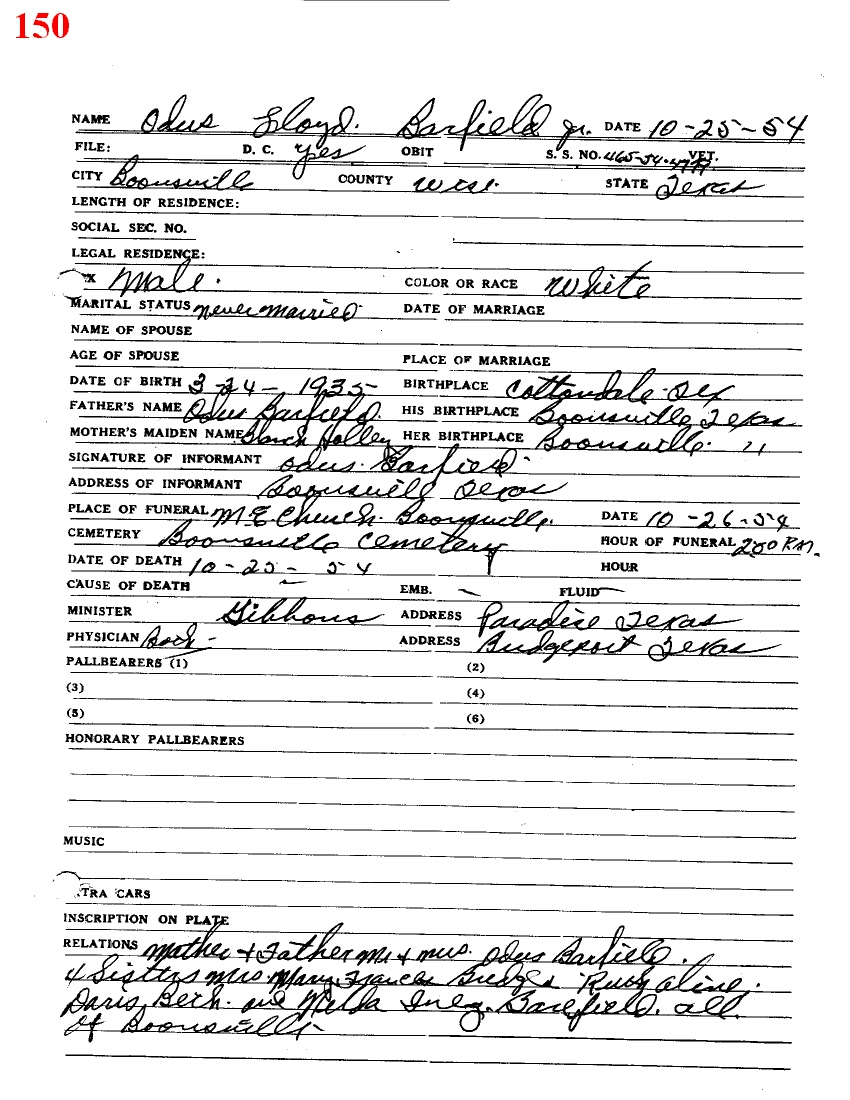 150
NAME Odus Floyd. Barfield Jr. DATE 10-25-54
FILE: D. C. yes OBIT S. S. NO. 465-54- VET.
CITY Boonsville COUNTY Wise. STATE Texas
LENGTH OF RESIDENCE:
SOCIAL SEC. NO.
LEGAL RESIDENCE:
X Male. COLOR OR RACE White
MARITAL STATUS never married DATE OF MARRIAGE
NAME OF SPOUSE
AGE OF SPOUSE PLACE OF MARRIAGE
DATE OF BIRTH 3-24-1935 BIRTHPLACE Cottondale Tex
FATHER'S NAME Odus Barfield. HIS BIRTHPLACE Boonsville Texas
MOTHER'S MAIDEN NAME Holley HER BIRTHPLACE Boonsville. "
SIGNATURE OF INFORMANT Odus. Barfield
ADDRESS OF INFORMANT Boonsvill Texas
PLACE OF FUNERAL M E Church. Boonsville. DATE 10-26-54
CEMETERY Boonsville Cemetery HOUR OF FUNERAL 200 P.M.
DATE OF DEATH 10-25-54 HOUR
CAUSE OF DEATH EMB. — FLUID —
MINISTER Gibbons ADDRESS Paradise Texas
PHYSICIAN ADDRESS Bridgeport Texas
PALLBEARERS (1) (2)
(3) (4)
(5) (6)
HONORARY PALLBEARERS
MUSIC
TRA CARS
INSCRIPTION ON PLATE
RELATIONS Mother + Father Mr + Mrs. Odus Barfield.
4 Sisters Mrs. Mary Frances Ruby aline.
Doris Beth. and Inez. Barefield. all.
of Boonsville